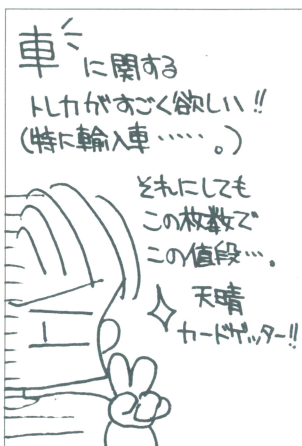 車 に関する
トレカがすごく欲しい!!
(特に輸入車……。)
それにしても
この枚数で
この値段…。
天晴
カードゲッター!!